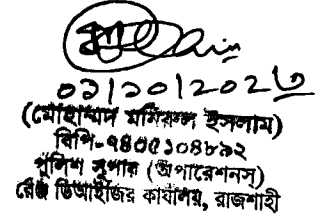 ০১|১০|২০২৩
(মোহাম্মদ মনিরুল ইসলাম)
বিপি-৭৪০৫১০৪৮৯২
পুলিশ সুপার (অপারেশনস্)
রেঞ্জ ডিআইজির কার্যালয়, রাজশাহী